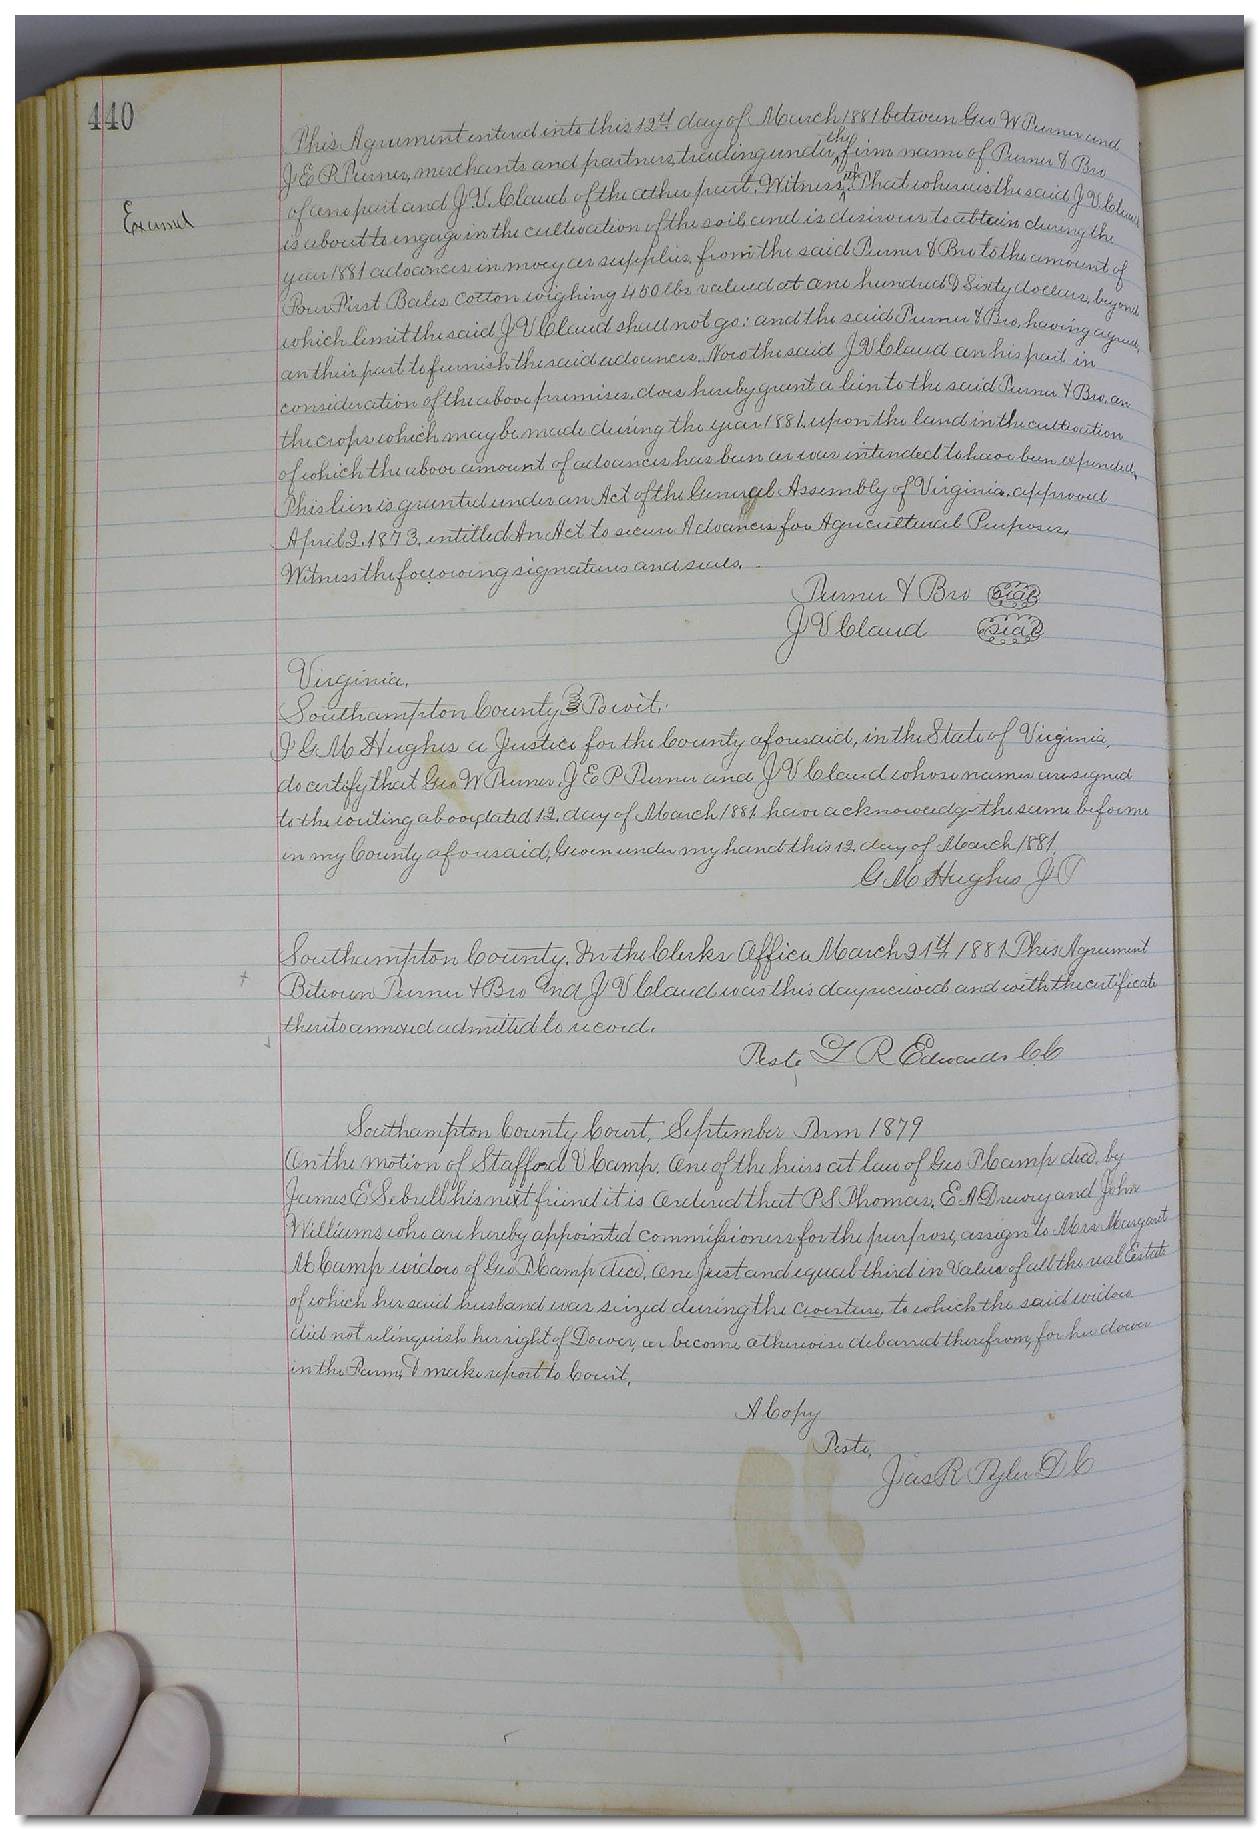 440
This Agreement entered into this 12th day of March 1881 between Geo W Turner and
J E P Turner, merchants and partners, trading under the firm name of Turner & Bro
of one part and J. V. Claud of the other part. Witnesseth: That whereas the said J V Claud
Examd
is about to engage in the cultivation of the soil and is desirous to obtain during the
year 1881 advances in moey or supplies, from the said Turner & Bro to the amount of
Four First Bales Cotton weighing 450 lbs valued at one hundred & Sixty dollars, beyond
which limit the said J V Claud shall not go: and the said Turner & Bro, having agreed,
on their part to furnish the said advances. Now the said J V Claud on his part in
consideration of the above premises, does hereby grant a lien to the said Turner & Bro, on
the crops which may be made during the year 1881, upon the land in the cultivation
of which the above amount of advances has been or was intended to have been expended,
This lien is granted under an Act of the General Assembly of Virginia, approved
April 2. 1873, entitled An Act to secure Advances for Agricultural Purposes,
Witness the following signatures and seals.
Turner & Bro Seal
J V Claud Seal
Virginia.
Southampton County To wit:
I G M Hughes a Justice for the County aforesaid, in the State of Virginia,
do certify that Geo W Turner, J E P Turner and J V Claud whose names are signed
to the writing above, dated 12, day of March 1881 have acknowledg the same before me
in my County aforesaid, Given under my hand this 12. day of March 1881.
G M Hughes J P
Southampton County. In the Clerks Office March 21st 1881 This Agreement
Between Turner & Bro and J V Claud was this day received and with the certificate
thereto annexed admitted to record.
Teste L R Edwards C.C
Southampton County Court, September Term 1879
On the motion of Stafford V Camp. One of the heirs at law of Geo P Camp decd. by
James E Sebrell his next friend it is Ordered that P S Thomas, E A Drewry and John
Williams who are hereby appointed commissioners for the purpose, assign to Mrs Margaret
M Camp widow of Geo P Camp decd, one just and equal third in Value of all the real Estate
of which her said husband was seized during the coverture, to which the said widow
did not relinquish her right of Dower, or become otherwise debarred therefrom, for her dower
in the Farm, & make report to Court.
A Copy
Teste,
Jas R Tyler D C